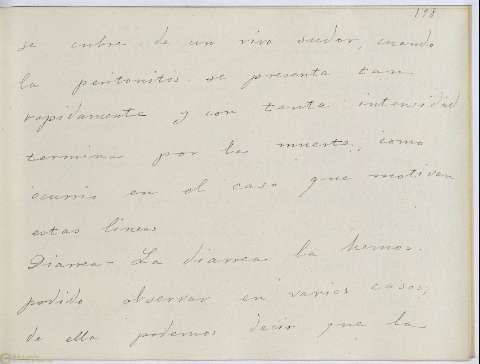 198
se cubre de un vivo sudor, cuando
la peritonitis se presenta tan
rapidamente y con tanta intensidad
termina por la muerte, como
ocurrio en el caso que motivan
estas lineas
Diarrea - La diarrea la hemos
podido observar en varios casos,
de ella podemos decir que la